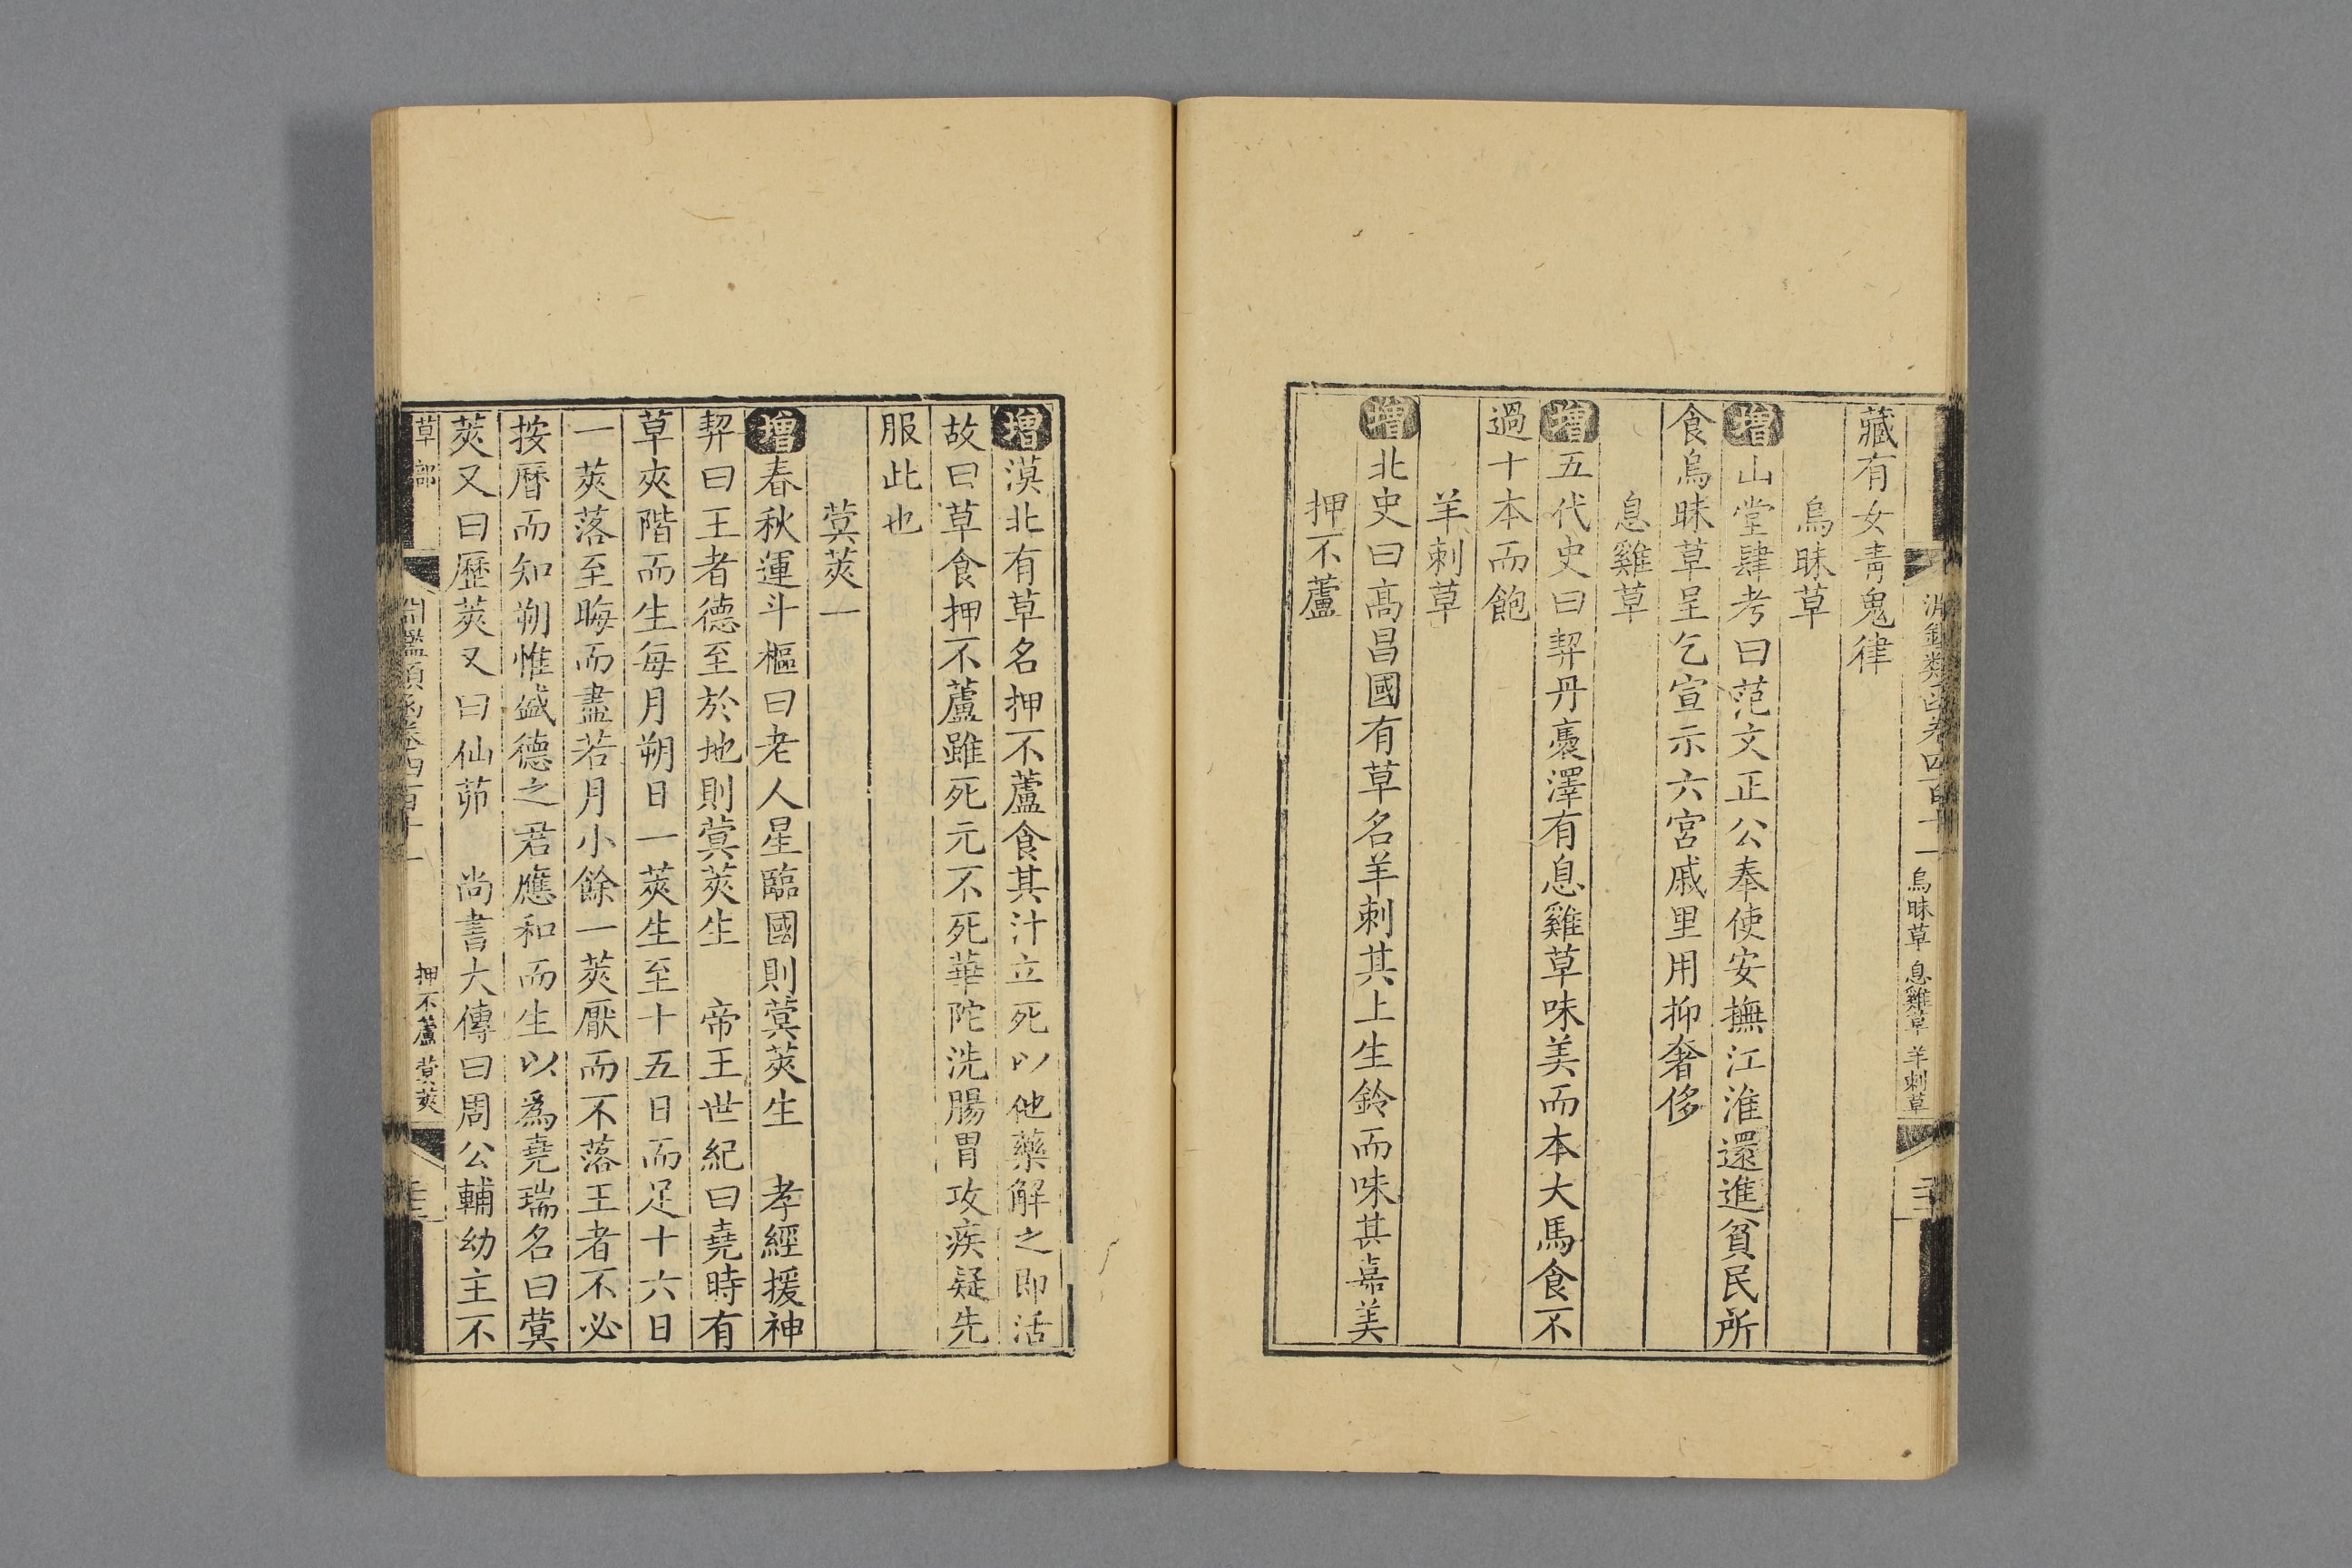 淵鑑類函卷四百十一 烏昧草 息雞草 羊刺草
藏有女靑鬼律
烏昧草
增山堂肆考曰范文正公奉使安撫江淮還進貧民所
食烏昧草呈乞宣示六宮戚里用抑奢侈
息雞草
增五代史曰契丹褭澤有息雞草味美而本大馬食不
過十本而飽
羊刺草
增北史曰高昌國有草名羊刺其上生鈴而味甚嘉美
押不蘆
增漠北有草名押不蘆食其汁立死以他藥解之即活
故曰草食押不蘆雖死元不死華陀洗腸胃攻疾疑先
服此也
蓂莢一
增春秋運斗樞曰老人星臨國則蓂莢生 孝經援神
契曰王者德至於地則蓂莢生 帝王世紀曰堯時有
草夾階而生每月朔日一莢生至十五日而足十六日
一莢落至晦而盡若月小餘一莢厭而不落王者不必
按曆而知朔惟盛德之君應和而生以爲堯瑞名曰蓂
莢又曰歷莢又曰仙茆 尚書大傳曰周公輔幼主不
草部 淵鑑類函卷四百十一 押不蘆 蓂莢